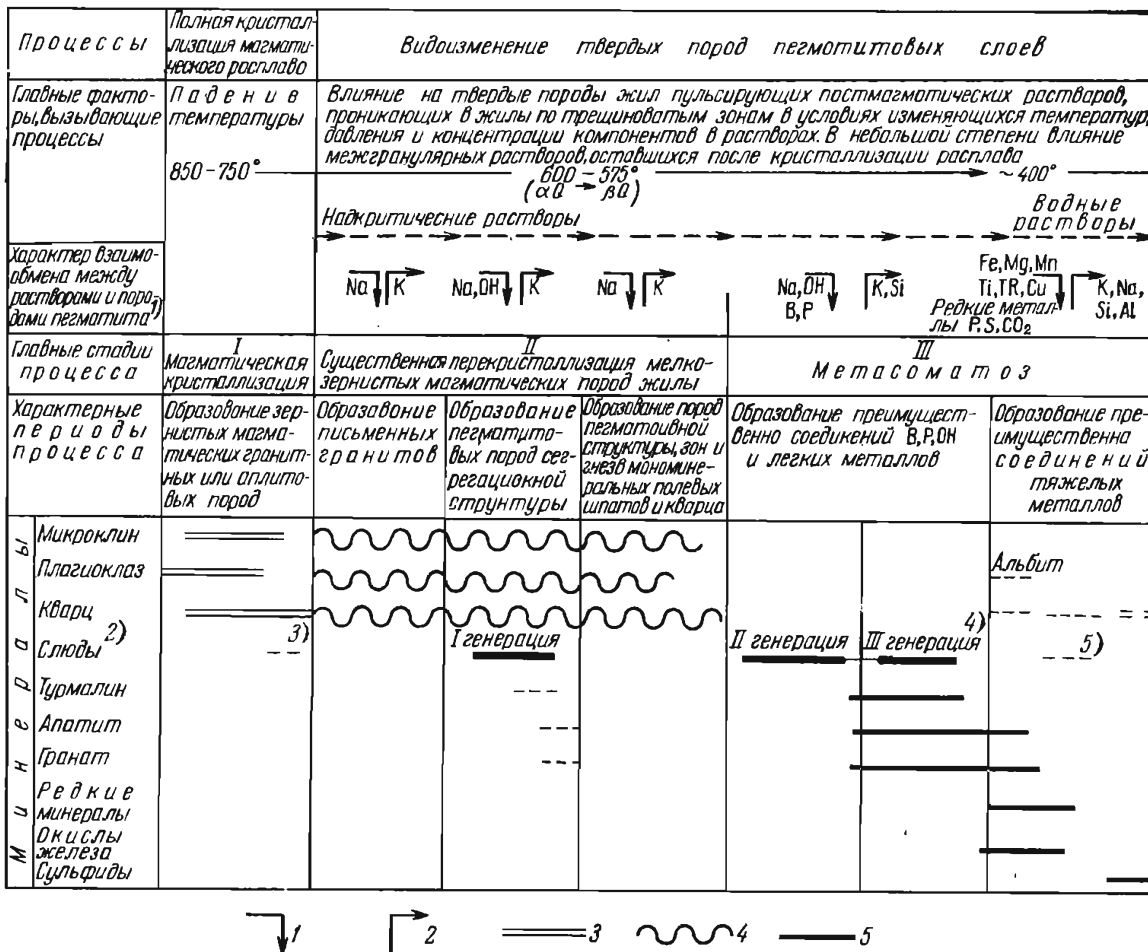 Процессы
Полная кристал-
лизация магмати-
ческого расплаво
Видоизменение твердых пород пегмотитовых слоев
Главные факто-
ры, вызывающие
процессы
Падение
температуры
850-750°
Влияние на твердые породы жил пульсирующих постмагматических растваров,
проникающих в жилы по трещиноватым зонам в условиях изменяющихся температур,
давления и концентрации компонентов в растворах. В небольшой степени влияние
межгранулярных растворов, оставшихся после кристаллизации расплава
600-575°
(αQ → βQ)
~400°
Надкритические растворы
Водные
растворы
Характер взаимо-
обмена между
растворами и поро-
дами пегматита1)
Na K
Na,OH K
Na K
Na,OH
B,P
K,Si
Fe,Mg,Mn
Ti,TR,Cu
Редкие метал-
лы P,S,CO2
K,Na,
Si,Al
Главные стадии
процесса
I
Магматическая
кристаллизация
II
Существенная перекристаллизация мелко-
зернистых магматических пород жилы
III
Метасоматоз
Характерные
периоды
процесса
Образование зер-
нистых магма-
тических гранит-
ных или аплито-
вых пород
Образавоние
письменных
гранитов
Образование
пегматито-
вых пород сег-
регационной
структуры
Образование пород
пегматоивной
структуры, зон и
гнезв мономине-
ральных полевых
шпатов и кварца
Образование преимущест-
венно соединений B,P,OH
и легких металлов
Образование пре-
имущественна
соединений
тяжелых
металлов
Минералы
Микроклин
Плагиоклаз
Альбит
Кварц
Слюды2)
3)
I генерация
II генерация
III генерация
4)
5)
Турмалин
Апатит
Гранат
Редкие
минералы
Окислы
железа
Сульфиды
1 2 3 4 5